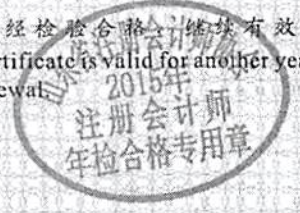 经检验合格，继续有效
rtificate is valid for another year
ewal.
山东省注册会计师协会
2015年
注册会计师
年检合格专用章